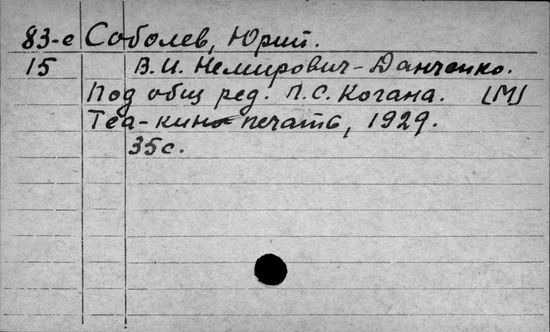 83-е Соболев, Юрий.
15 В.И. Немирович-Данченко.
Под общ ред. П.С. Когана. [М]
Теа-кино печать, 1929.
35с.